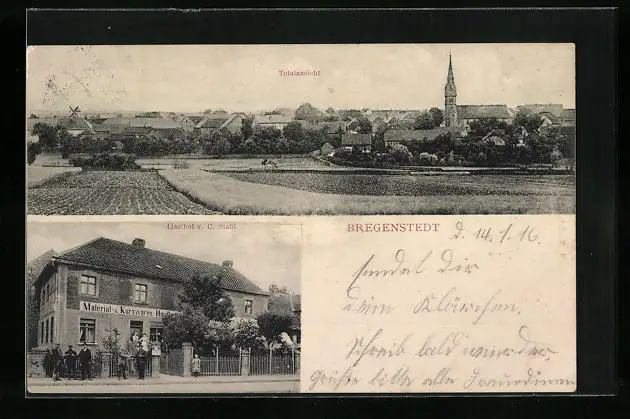 Totalansicht
Gasthof v. C. Stahl
Material- u. Kurzwaren-Handlung
BREGENSTEDT
d. 14. 1. 16
sendet Dir
dein Klärchen.
Schreib bald wieder
Grüße bitte alle Freundinnen